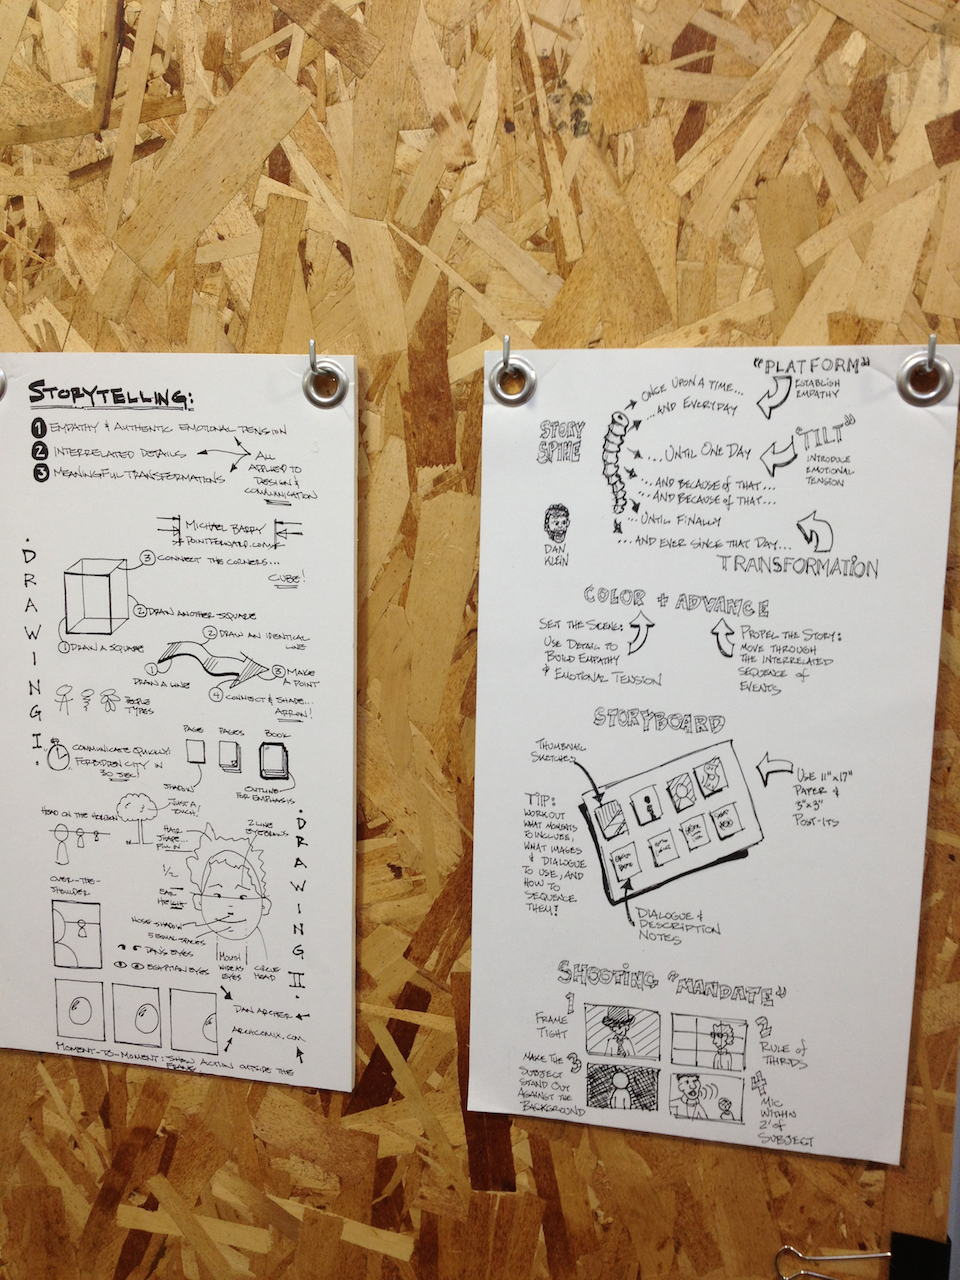 STORYTELLING:
1 EMPATHY & AUTHENTIC EMOTIONAL TENSION
2 INTERRELATED DETAILS
3 MEANINGFUL TRANSFORMATIONS
ALL
APPLIED TO
DESIGN &
COMMUNICATION
MICHAEL BARRY
POINTFORWARD.COM
• DRAWING I •
3 CONNECT THE CORNERS...
CUBE!
2 DRAW ANOTHER SQUARE
1 DRAW A SQUARE
2 DRAW AN IDENTICAL
LINE
1
DRAW A LINE
3 MAKE
A POINT
4 CONNECT & SHADE...
ARROW!
PEOPLE
TYPES
COMMUNICATE QUICKLY:
FORBIDDEN CITY IN
30 SEC!
PAGE
PAGES
BOOK
SHADOW
JUST A
TOUCH!
OUTLINE
FOR EMPHASIS
• DRAWING II •
HEAD ON THE HORIZON
HAIR
SHAPE...
FILL IN
2 LINE
EYEBROWS
1/2
EAR
HEIGHT
OVER-THE-
SHOULDER
NOSE SHADOW
5 EQUAL SPACES
DAN'S EYES
EGYPTIAN EYES
MOUTH
WIDE AS
EYES
CIRCLE
HEAD
DAN ARCHER
ARCHCOMIX.COM
MOMENT-TO-MOMENT: SHOW ACTION OUTSIDE THE
FRAME
STORY
SPINE
"PLATFORM"
ESTABLISH
EMPATHY
ONCE UPON A TIME...
...AND EVERYDAY
"TILT"
INTRODUCE
EMOTIONAL
TENSION
...UNTIL ONE DAY
...AND BECAUSE OF THAT...
...AND BECAUSE OF THAT...
...UNTIL FINALLY
...AND EVER SINCE THAT DAY...
TRANSFORMATION
DAN
KLEIN
COLOR + ADVANCE
SET THE SCENE:
USE DETAIL TO
BUILD EMPATHY
& EMOTIONAL TENSION
PROPEL THE STORY:
MOVE THROUGH
THE INTERRELATED
SEQUENCE OF
EVENTS
STORYBOARD
THUMBNAIL
SKETCHES
USE 11"x17"
PAPER &
3"x3"
POST-ITS
TIP:
WORK OUT
WHAT MOMENTS
TO INCLUDE,
WHAT IMAGES
& DIALOGUE
TO USE, AND
HOW TO
SEQUENCE
THEM!
DIALOGUE &
DESCRIPTION
NOTES
SHOOTING "MANDATE"
1
FRAME
TIGHT
2
RULE OF
THIRDS
3
MAKE THE
SUBJECT
STAND OUT
AGAINST THE
BACKGROUND
4
MIC
WITHIN
2' OF
SUBJECT